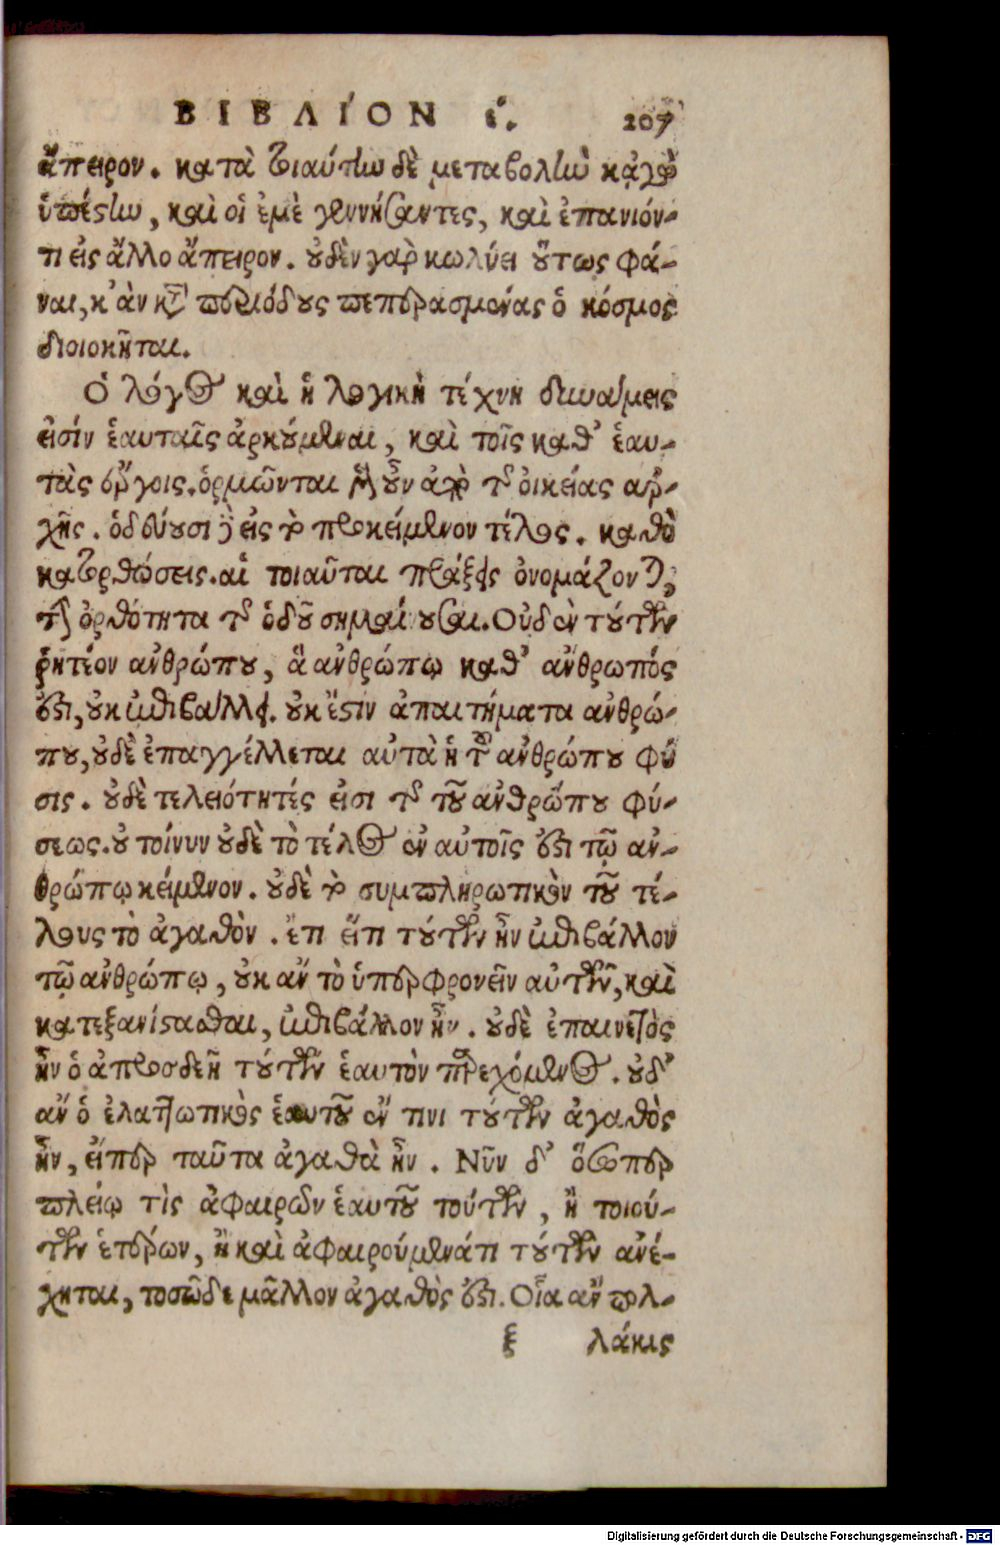 ΒΙΒΛΙΌΝ ί. 207
ἄπειρον. κατὰ τοιαύτην δὲ μεταβολὴν κᾀγὼ
ὑπέστην, καὶ οἱ ἐμὲ γεννήσαντες, καὶ ἐπανιόν-
τι εἰς ἄλλο ἄπειρον. οὐδὲν γὰρ κωλύει οὕτως φά-
ναι, κ᾽ ἂν κατὰ περιόδους πεπερασμένας ὁ κόσμος
διοιοκῆται.
Ὁ λόγος καὶ ἡ λογικὴ τέχνη δυνάμεις
εἰσίν ἑαυταῖς ἀρκούμεναι, καὶ τοῖς καθ᾽ ἑαυ-
τὰς ἔργοις. ὁρμῶνται μὲν οὖν ἀπὸ τῆς οἰκείας ἀρ-
χῆς. ὁδεύουσι δὲ εἰς τὸ προκείμενον τέλος. καθὸ
κατορθώσεις. αἱ τοιαῦται πράξεις ὀνομάζονται,
τὴν ὀρθότητα τῆς ὁδοῦ σημαίνουσαι. Οὐδὲν τούτων
ῥητέον ἀνθρώπου, ἃ ἀνθρώπῳ καθ᾽ ἄνθρωπός
ἐστι, οὐκ ἐπιβάλλει. οὐκ ἔστιν ἀπαιτήματα ἀνθρώ-
που, οὐδὲ ἐπαγγέλλεται αὐτὰ ἡ τοῦ ἀνθρώπου φύ
σις. οὐδὲ τελειότητές εἰσι τῆς τοῦ ἀνθρώπου φύ-
σεως. οὐ τοίνυν οὐδὲ τὸ τέλος ἐν αὐτοῖς ἐστι τῷ ἀν-
θρώπῳ κείμενον. οὐδὲ τὸ συμπληρωτικὸν τοῦ τέ-
λους τὸ ἀγαθὸν. ἔτι εἴ τι τούτων ἦν ἐπιβάλλον
τῷ ἀνθρώπῳ, οὐκ ἂν τὸ ὑπερφρονεῖν αὐτῶν, καὶ
κατεξανίστασθαι, ἐπιβάλλον ἦν. οὐδὲ ἐπαινετὸς
ἦν ὁ ἀπροσδεῆ τούτων ἑαυτὸν παρεχόμενος. οὐδ᾽
ἂν ὁ ἐλαττωτικὸς ἑαυτοῦ ἔν τινι τούτων ἀγαθὸς
ἦν, εἴπερ ταῦτα ἀγαθὰ ἦν. Νῦν δ᾽ ὅσωπερ
πλείω τὶς ἀφαιρῶν ἑαυτοῦ τούτων, ἢ τοιού-
των ἑτέρων, ἢ καὶ ἀφαιρούμενός τι τούτων ἀνέ-
χηται, τοσῷδε μᾶλλον ἀγαθὸς ἐστι. Οἷα ἂν πολ-
ξ λάκις
Digitalisierung gefördert durch die Deutsche Forschungsgemeinschaft - DFG